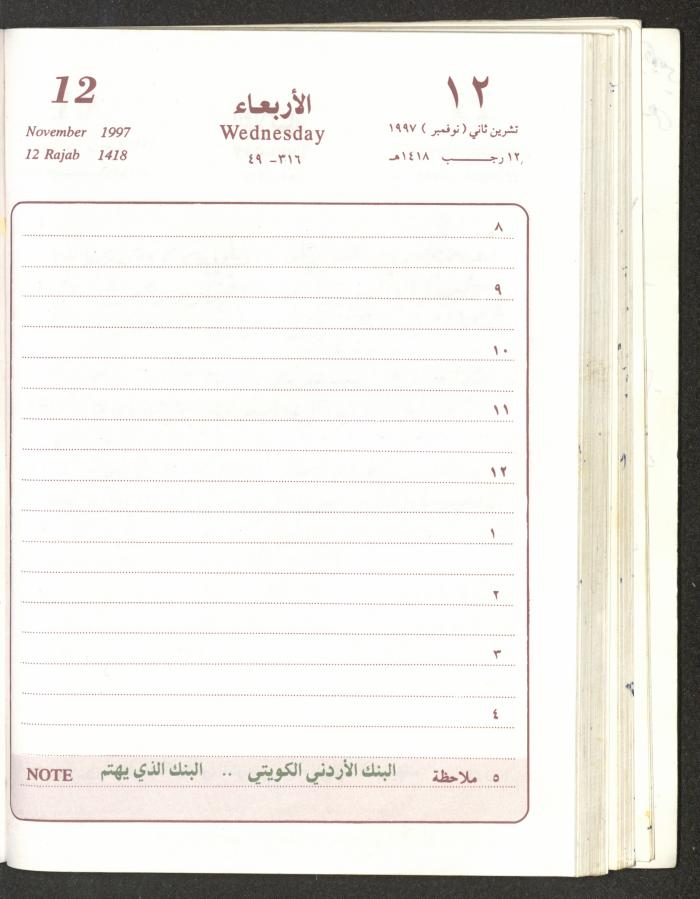 12 الأربعاء ١٢
November 1997 Wednesday تشرين ثاني ( نوفمبر ) ١٩٩٧
12 Rajab 1418 ٣١٦ - ٤٩ ١٢ رجــب ١٤١٨هـ
٨
٩
١٠
١١
١٢
١
٢
٣
٤
٥ ملاحظة البنك الأردني الكويتي .. البنك الذي يهتم NOTE